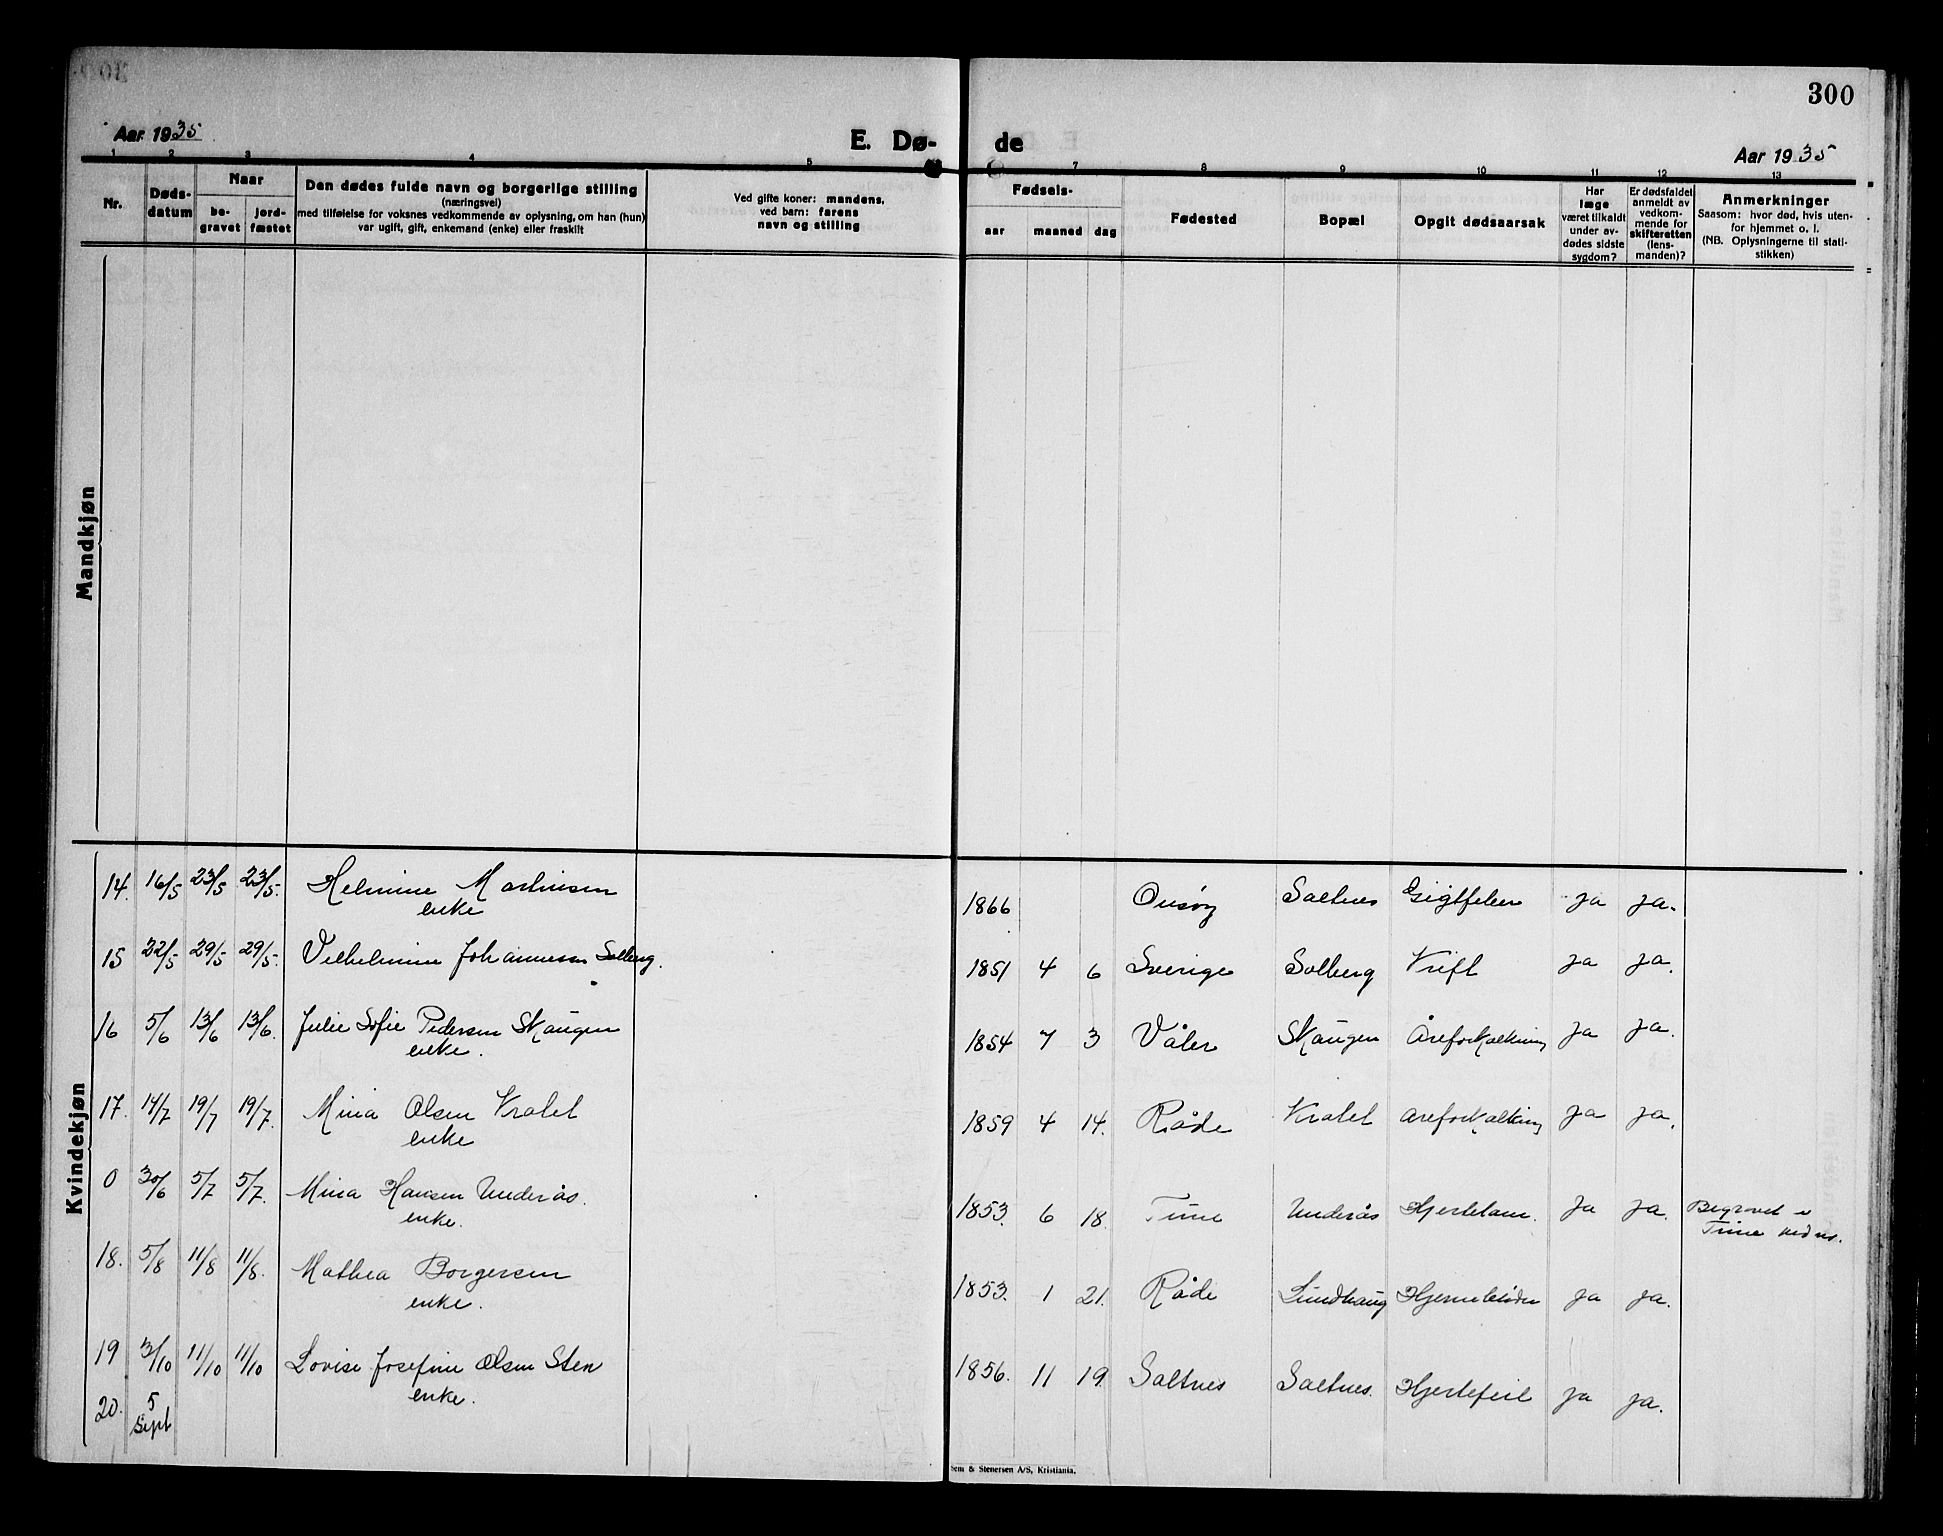 300
Aar 1935
E. Dø-
de
Aar 1935
1 2 3 4 5 7 8 9 10 11 12 13
Nr.
Døds-
datum
Naar
be-
gravet
jord-
fæstet
Den dødes fulde navn og borgerlige stilling
(næringsvei)
med tilføielse for voksnes vedkommende av oplysning, om han (hun)
var ugift, gift, enkemand (enke) eller fraskilt
Ved gifte koner: mandens,
ved barn: farens
navn og stilling
Fødsels-
aar maaned dag
Fødested
Bopæl
Opgit dødsaarsak
Har
læge
været tilkaldt
under av-
dødes sidste
sygdom?
Er dødsfaldet
anmeldt av
vedkom-
mende for
skifteretten
(lens-
manden)?
Anmerkninger
Saasom: hvor død, hvis uten-
for hjemmet o. l.
(NB. Oplysningerne til stati-
stikken)
Mandkjøn
Kvindekjøn
14. 16/5 23/5 23/5. Helmine Martinsen 1866 Onsøy Saltnes Gigtfeber ja ja.
enke
15 22/5 29/5 29/5. Vilhelmine Johannessen Solberg. 1851 4 6 Sverige Solberg Kreft ja ja.
16 5/6 13/6 13/6. Julie Sofie Pedersen Skaugen 1854 7 3 Våler Skaugen Åreforkalkning ja ja.
enke.
17. 14/7 19/7 19/7. Mina Olsen Kratet 1859 4 14. Råde Kratet Åreforkalkning ja ja.
enke
0 30/6 5/7 5/7. Mina Hansen Underås. 1853. 6 18. Tune Underås Hjertelam. ja ja. Begravet i
enke. Tune
18. 5/8 11/8 11/8. Mathea Borgersen 1853. 1 21. Råde Lundhaug ja ja.
enke.
19 3/10 11/10 11/10 Lovise Josefine Olsen Sten 1856. 11 19. Saltnes Saltnes. Hjertefeil ja ja.
enke.
20. 5
Sept
Sem & Stenersen A/S, Kristiania.